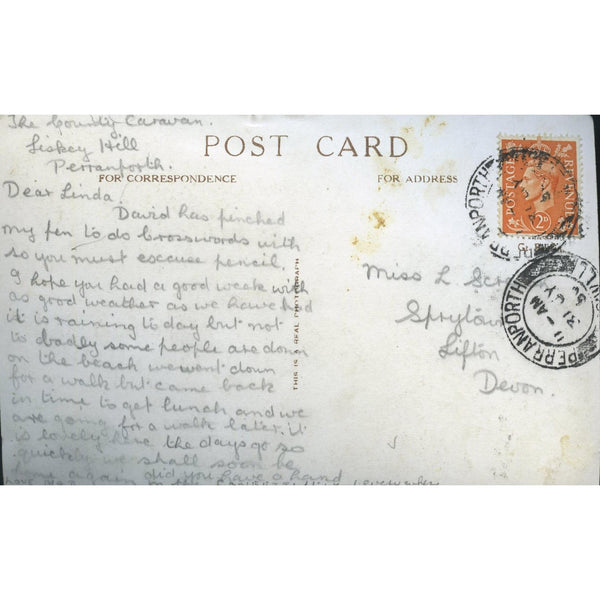 The County Caravan.
Liskey Hill
Perranporth.
POST CARD
FOR CORRESPONDENCE
FOR ADDRESS
Dear Linda.
David has pinched
my pen to do Crosswords with
so you must excuse pencil.
I hope you had a good week with
as good weather as we have had
it is raining to day but not
to badly some people are down
on the beach we went down
for a walk but came back
in time to get lunch and we
are going for a walk later. it
is lovely here the days go so
quickly we shall soon be
home again did you have a hand
THIS IS A REAL PHOTOGRAPH
Miss L
Sprytown
Lifton
Devon.
POSTAGE
REVENUE
2D
PERRANPORTH
PERRANPORTH
11-AM
31 JY
50